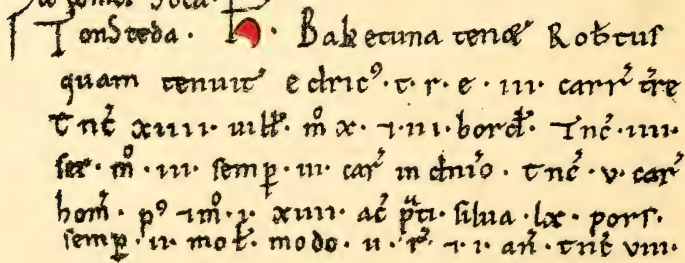 Tonsteda. H. Baketuna tenet Robtus
quam tenuit edric9. t. r. e. iii. carr tre
Tnc xiiii. uill. m x. 7. iii. bord. Tnc. iiii.
ser. m. iii. semp. iii. car in dnio. tnc. v. car
hom. p9 7 m. i. xiiii. ac pti. silua. lx. pors.
semp. ii. mol. modo. ii. r. 7 i. an. tnc viii.